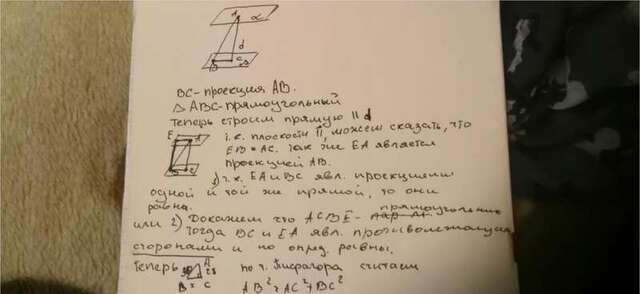 A
α
d
B
C
BC-проекция AB.
△ ABC-прямоугольный
Теперь строим прямую || d
т.к. плоскости ||, можем сказать, что
EB = AC. Так же EA является
проекцией AB.
1) т.к. EA и BC явл. проекциями
одной и той же прямой, то они
равны.
или 2) Докажем что ACBE - прямоугольник
Тогда BC и EA явл. противолежащими
сторонами и по опред. равны.
Теперь по т. Пифагора считаем
B = C AB² = AC² + BC²